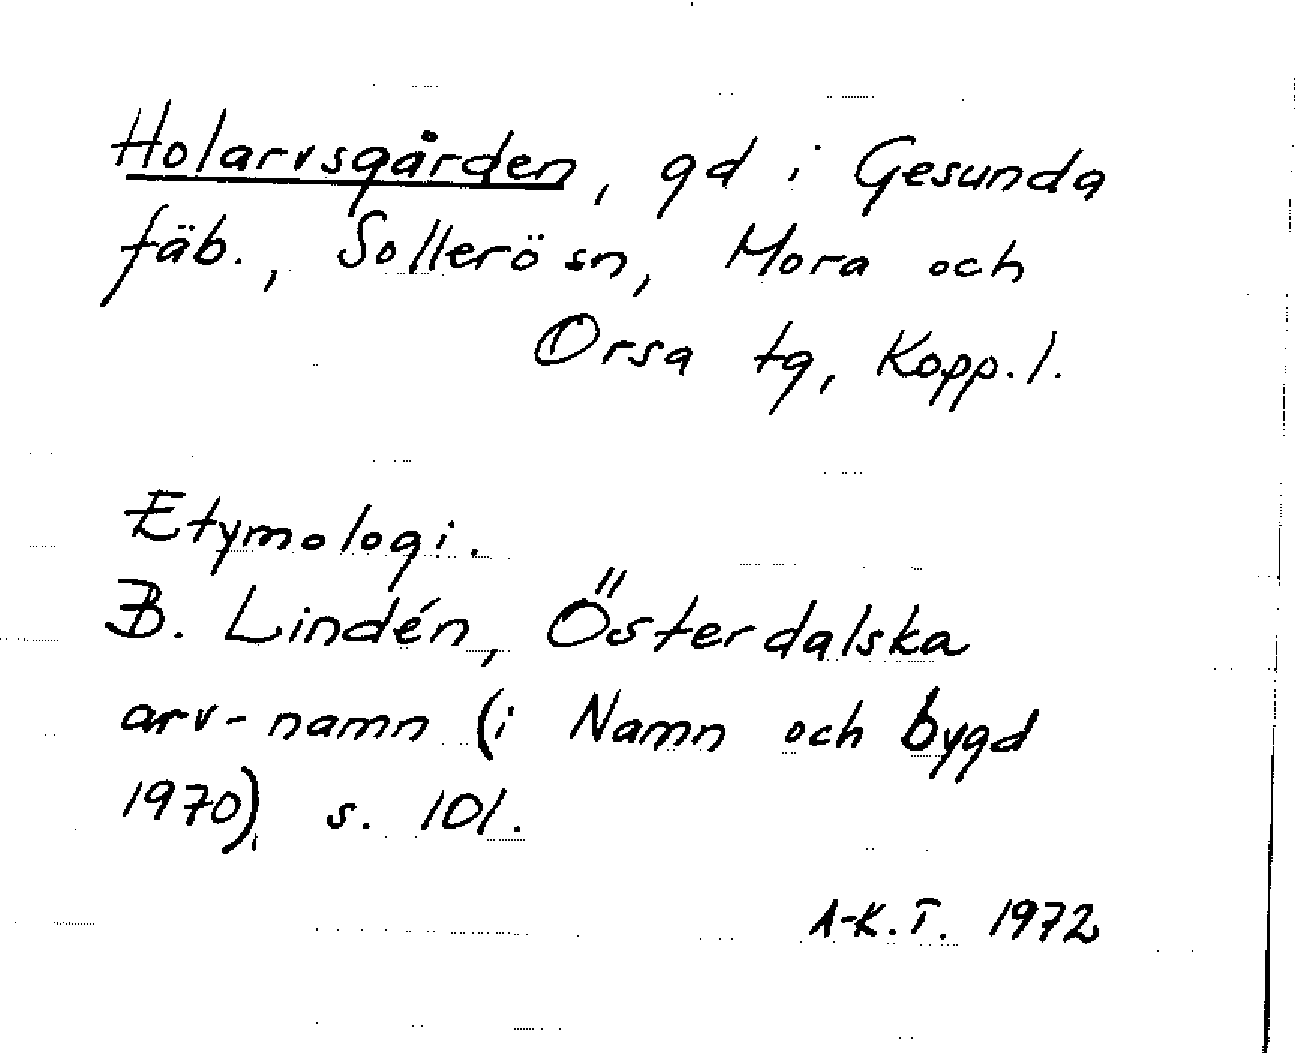 Holarvsgården, gd i Gesunda
fäb., Sollerö sn, Mora och
Orsa tg, Kopp.l.
Etymologi.
B. Lindén, Österdalska
arv-namn (i Namn och bygd
1970), s. 101.
A-K.T. 1972